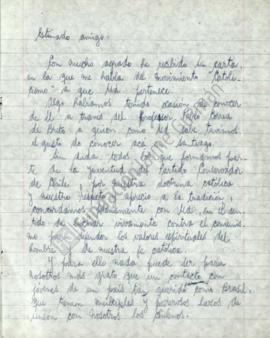 Estimado amigo:
Con mucho agrado he recibido su carta,
en la que me habla del movimiento "Catoli-
cismo" a que Ud. pertenece.
Algo habíamos tenido ocasión de conocer
de él a través del Profesor,
a quien como Ud. sabe, tuvimos
el gusto de conocer acá en Santiago.
Sin duda, todos los que formamos par-
te de la juventud del Partido Conservador
de Chile, por nuestra doctrina católica
y nuestro respeto y aprecio a la tradición,
concordamos con Uds. en el sen-
tido de luchar contra el comunis-
mo, por defender los valores espirituales del
hombre y de nuestra fe católica.
Y para ello nada puede ser para
nosotros más grato que un contacto con
jóvenes de un país tan querido como Brasil,
que tienen múltiples y poderosos lazos de
unión con nosotros los chilenos.